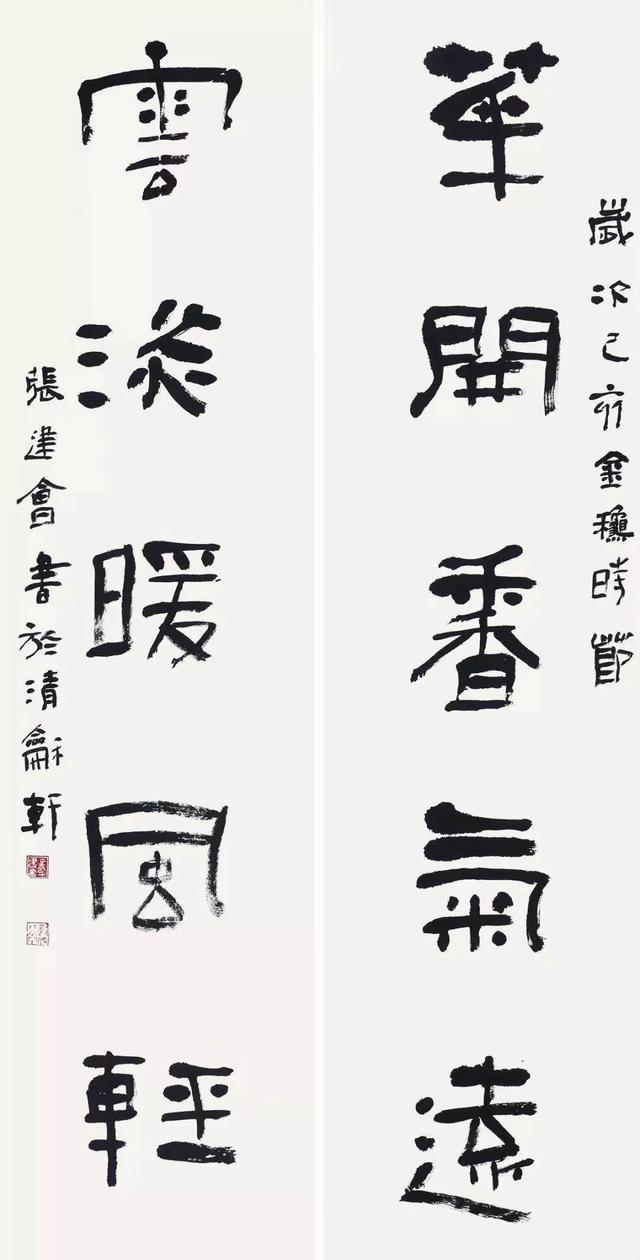 歲次己亥金穐時節
華開香氣遠
雲淡暖風輕
張建會書於清龢軒